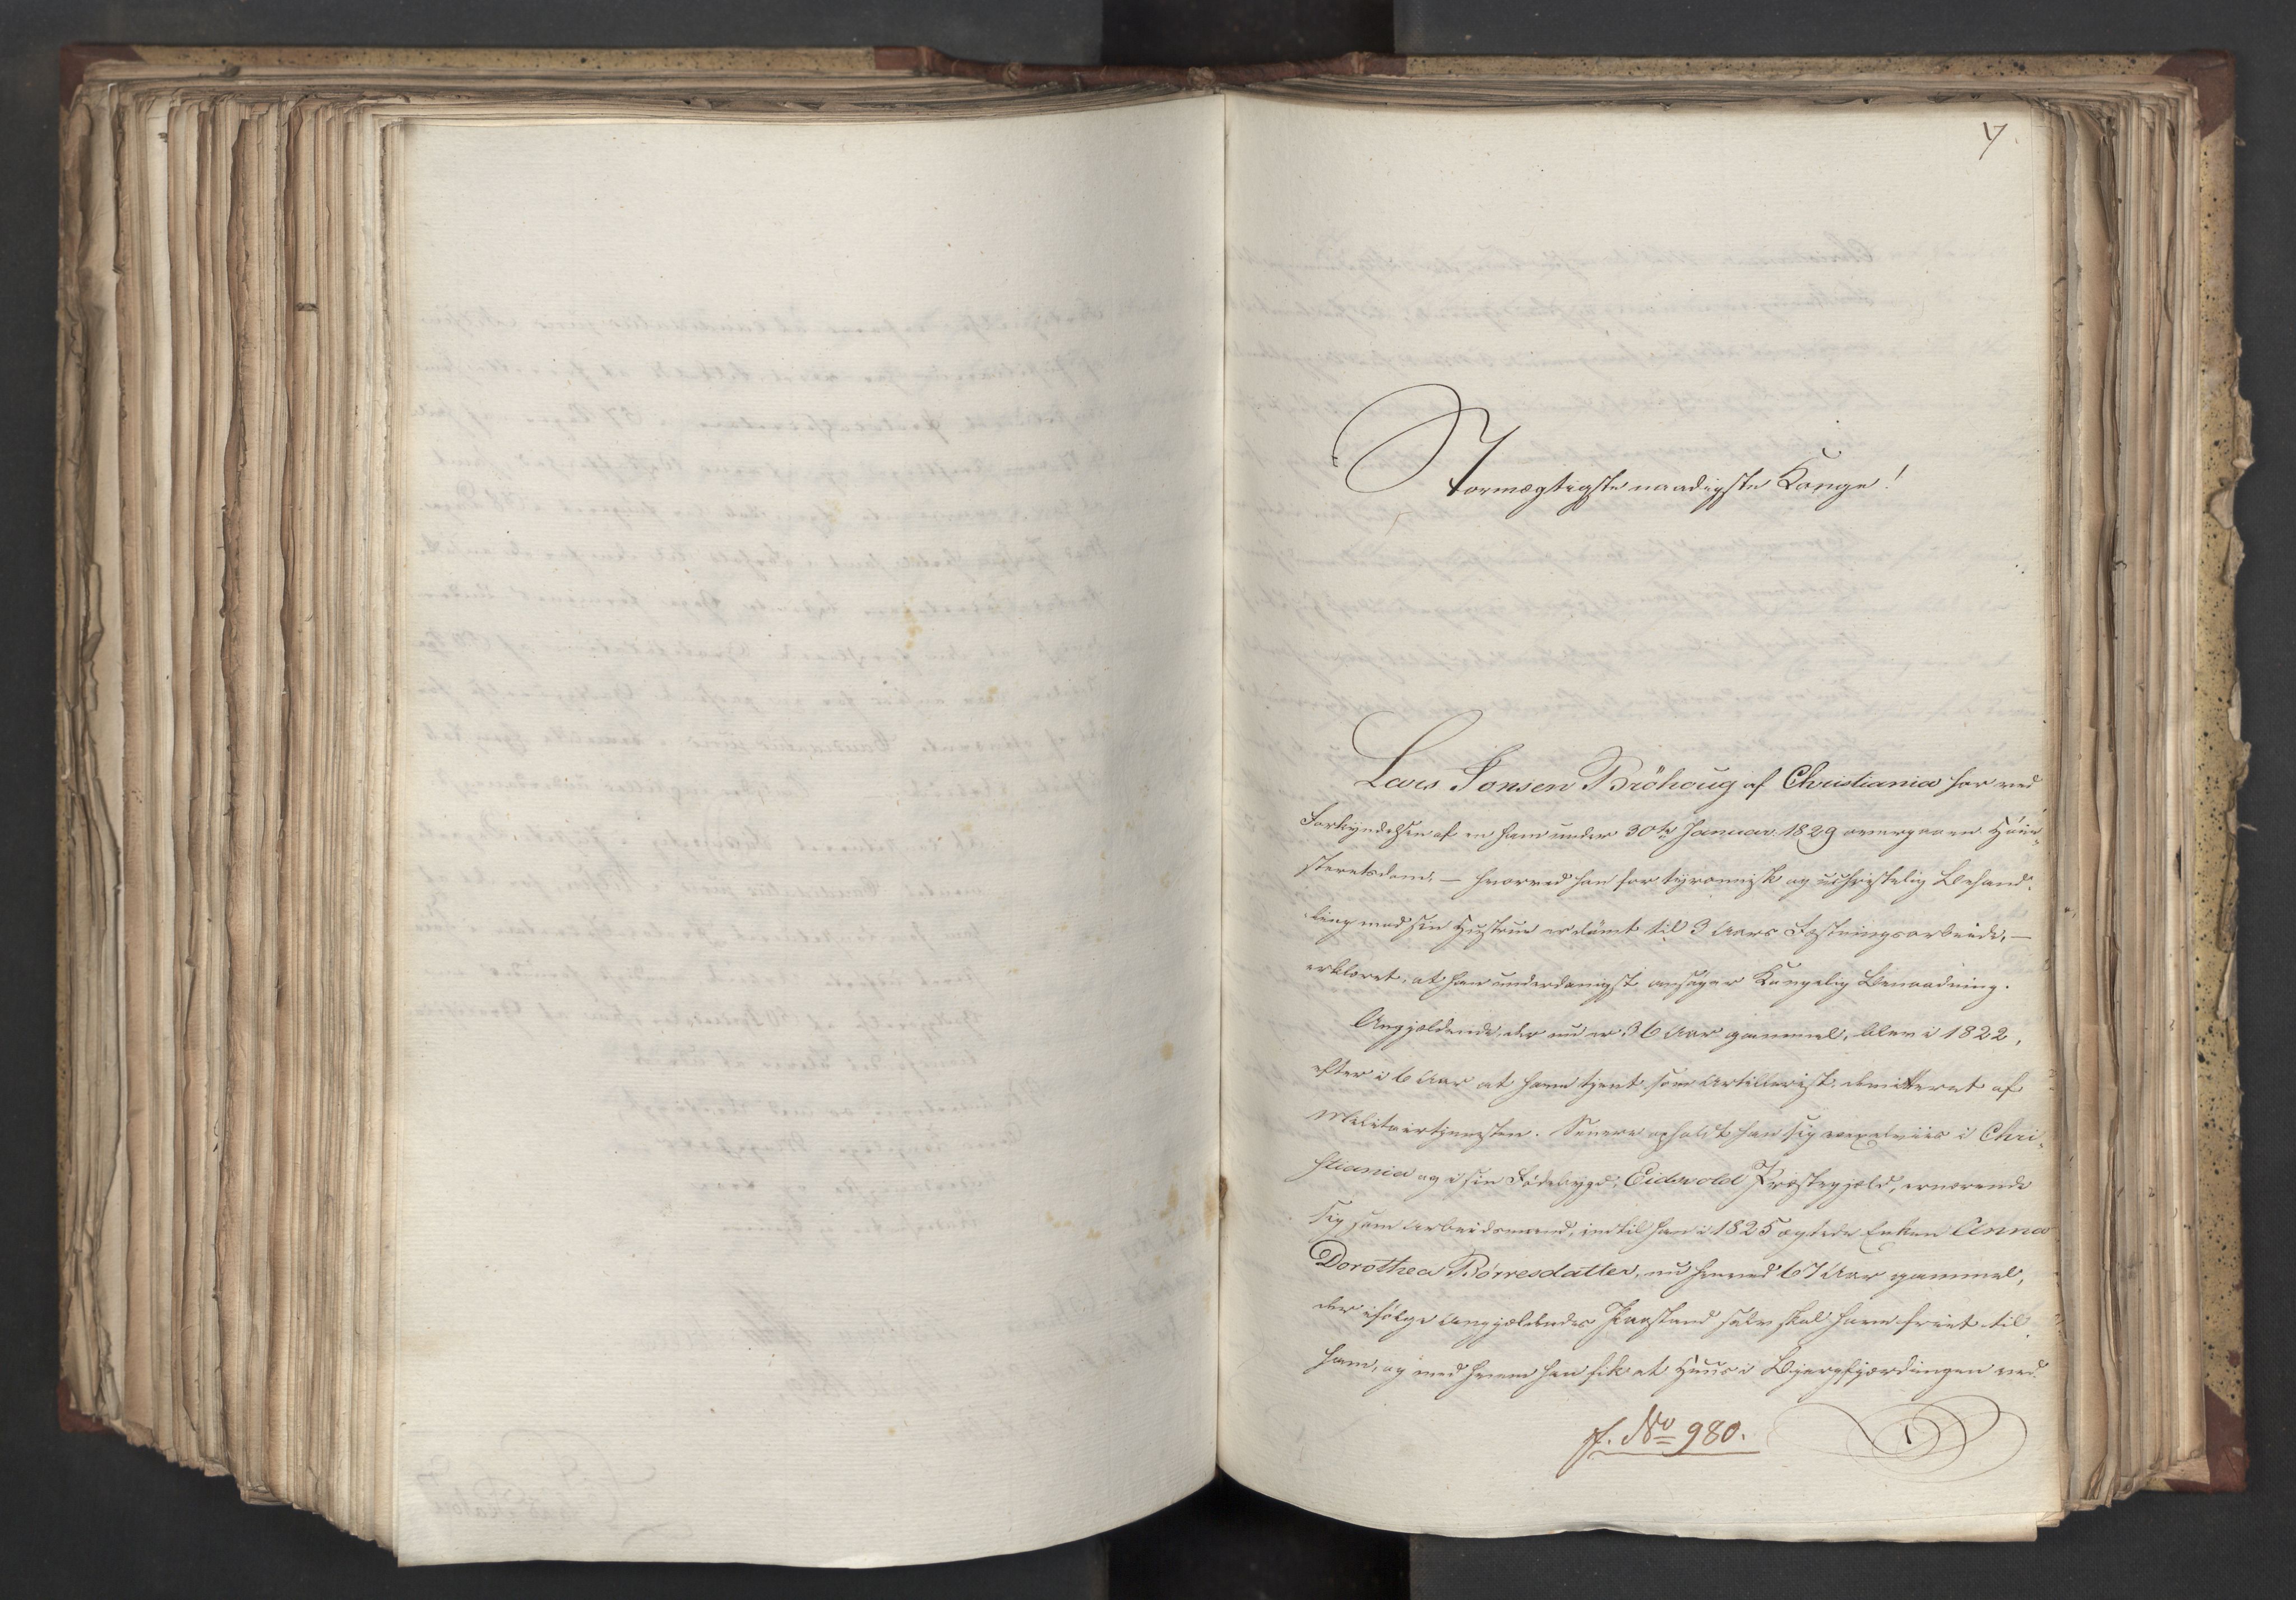 7.
Stormægtigste naadigste Konge!
Lars Jonsen Bröhoug af Christiania har ved
Forkyndelsen af en ham under 30te Januar 1829 overgaaen Höie-
steretsdom, — hvorved han for tyrannisk og uchristelig Behand-
ling mod sin Hustrue er dömt til 3 Aars Fæstningsarbeide, —
erklæret, at han underdanigst ansöger Kongelig Benaadning.
Angjældende, der nu er 36 Aar gammel, blev i 1822,
efter i 6 Aar at have tjent som Artillerist, demitteret af
Militairtjenesten. Senere opholdt han sig vexelviis i Chri-
stiania og i sin Födebygd, Eidsvold Præstegjæld, ernærende
sig som Arbeidsmand, indtil han i 1825 ægtede Enken Anna
Dorothea Börresdatter, nu henved 67 Aar gammel,
der ifölge Angjældendes Paastand selv skal have friet til
ham, og med hvem han fik et Huus i Bjergfjerdingen ved
ff. No 980.